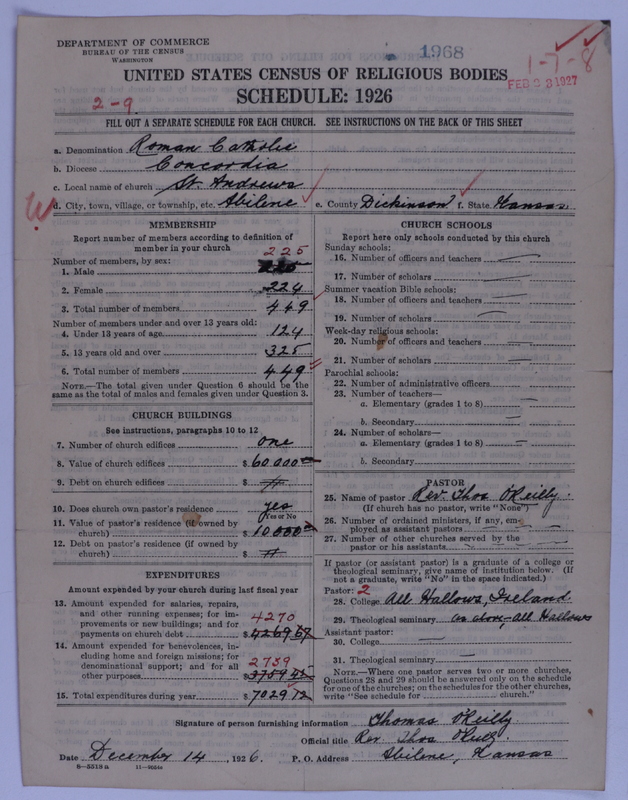 DEPARTMENT OF COMMERCE
BUREAU OF THE CENSUS
WASHINGTON
1968
1-7-8
FEB 23 1927
UNITED STATES CENSUS OF RELIGIOUS BODIES
SCHEDULE: 1926
2-9
FILL OUT A SEPARATE SCHEDULE FOR EACH CHURCH. SEE INSTRUCTIONS ON THE BACK OF THIS SHEET
a. Denomination Roman Catholic
b. Diocese Concordia
c. Local name of church St. Andrews
d. City, town, village, or township, etc. Abilene e. County Dickinson f. State Kansas.
MEMBERSHIP
Report number of members according to definition of
member in your church
225
Number of members, by sex:
1. Male
2. Female 224
3. Total number of members 449
Number of members under and over 13 years old:
4. Under 13 years of age 124
5. 13 years old and over 325
6. Total number of members 449
NOTE.—The total given under Question 6 should be the
same as the total of males and females given under Question 3.
CHURCH BUILDINGS
See instructions, paragraphs 10 to 12
7. Number of church edifices one
8. Value of church edifices $ 60.000
9. Debt on church edifices $
10. Does church own pastor's residence yes
Yes or No
11. Value of pastor's residence (if owned by
church) $ 10000
12. Debt on pastor's residence (if owned by
church) $
EXPENDITURES
Amount expended by your church during last fiscal year
13. Amount expended for salaries, repairs,
and other running expenses; for im-
provements or new buildings; and for 4270
payments on church debt $ 4269 67
14. Amount expended for benevolences, in-
cluding home and foreign missions; for
denominational support; and for all 2759
other purposes $ 2759 45
15. Total expenditures during year $ 7029 12
CHURCH SCHOOLS
Report here only schools conducted by this church
Sunday schools:
16. Number of officers and teachers
17. Number of scholars
Summer vacation Bible schools:
18. Number of officers and teachers
19. Number of scholars
Week-day religious schools:
20. Number of officers and teachers
21. Number of scholars
Parochial schools:
22. Number of administrative officers
23. Number of teachers—
a. Elementary (grades 1 to 8)
b. Secondary
24. Number of scholars—
a. Elementary (grades 1 to 8)
b. Secondary
PASTOR
25. Name of pastor Rev. Thos O'Reilly.
(If church has no pastor, write "None")
26. Number of ordained ministers, if any, em-
ployed as assistant pastors
27. Number of other churches served by the
pastor or his assistants
If pastor (or assistant pastor) is a graduate of a college or
theological seminary, give name of institution below. (If
not a graduate, write "No" in the space indicated.)
Pastor: 2
28. College All Hallows, Ireland
29. Theological seminary as above, All Hallows
Assistant pastor:
30. College
31. Theological seminary
NOTE.—Where one pastor serves two or more churches,
Questions 28 and 29 should be answered only on the schedule
for one of the churches; on the schedules for the other churches,
write "See schedule for church."
Signature of person furnishing information Thomas O'Reilly
Official title Rev. Thos O'Reilly.
Date December 14, 1926. P. O. Address Abilene, Kansas
8—5518a